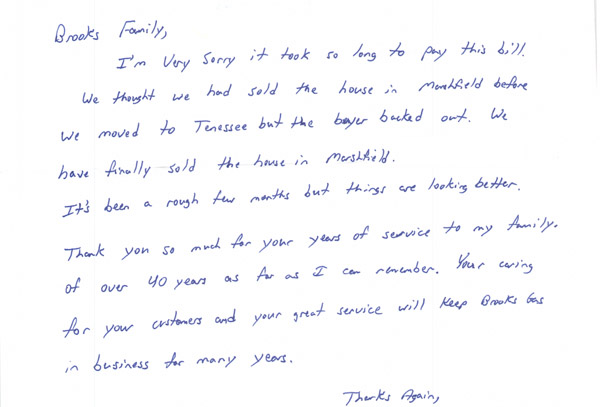 Brooks Family,
I'm Very Sorry it took so long to pay this bill.
We thought we had sold the house in Marshfield before
we moved to Tenessee but the buyer backed out. We
have finally sold the house in Marshfield.
It's been a rough few months but things are looking better.
Thank you so much for your years of service to my family.
of over 40 years as far as I can remember. Your caring
for your customers and your great service will keep Brooks Gas
in business for many years.
Thanks Again,